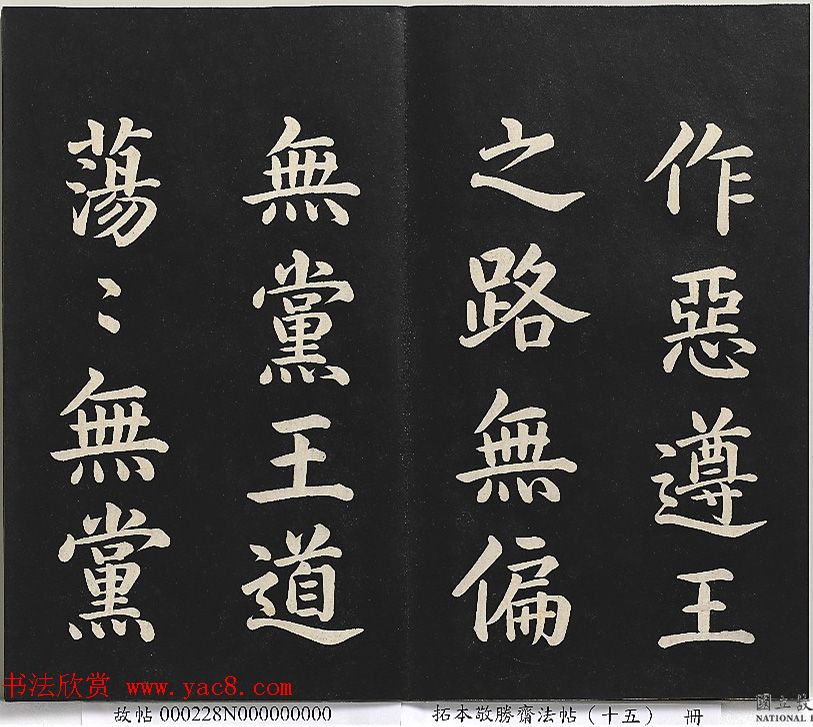 作惡遵王
之路無偏
無黨王道
蕩〻無黨
书法欣赏 www.yac8.com
故帖 000228N000000000
拓本敬勝齋法帖（十五） 冊
國立故
NATIONAL